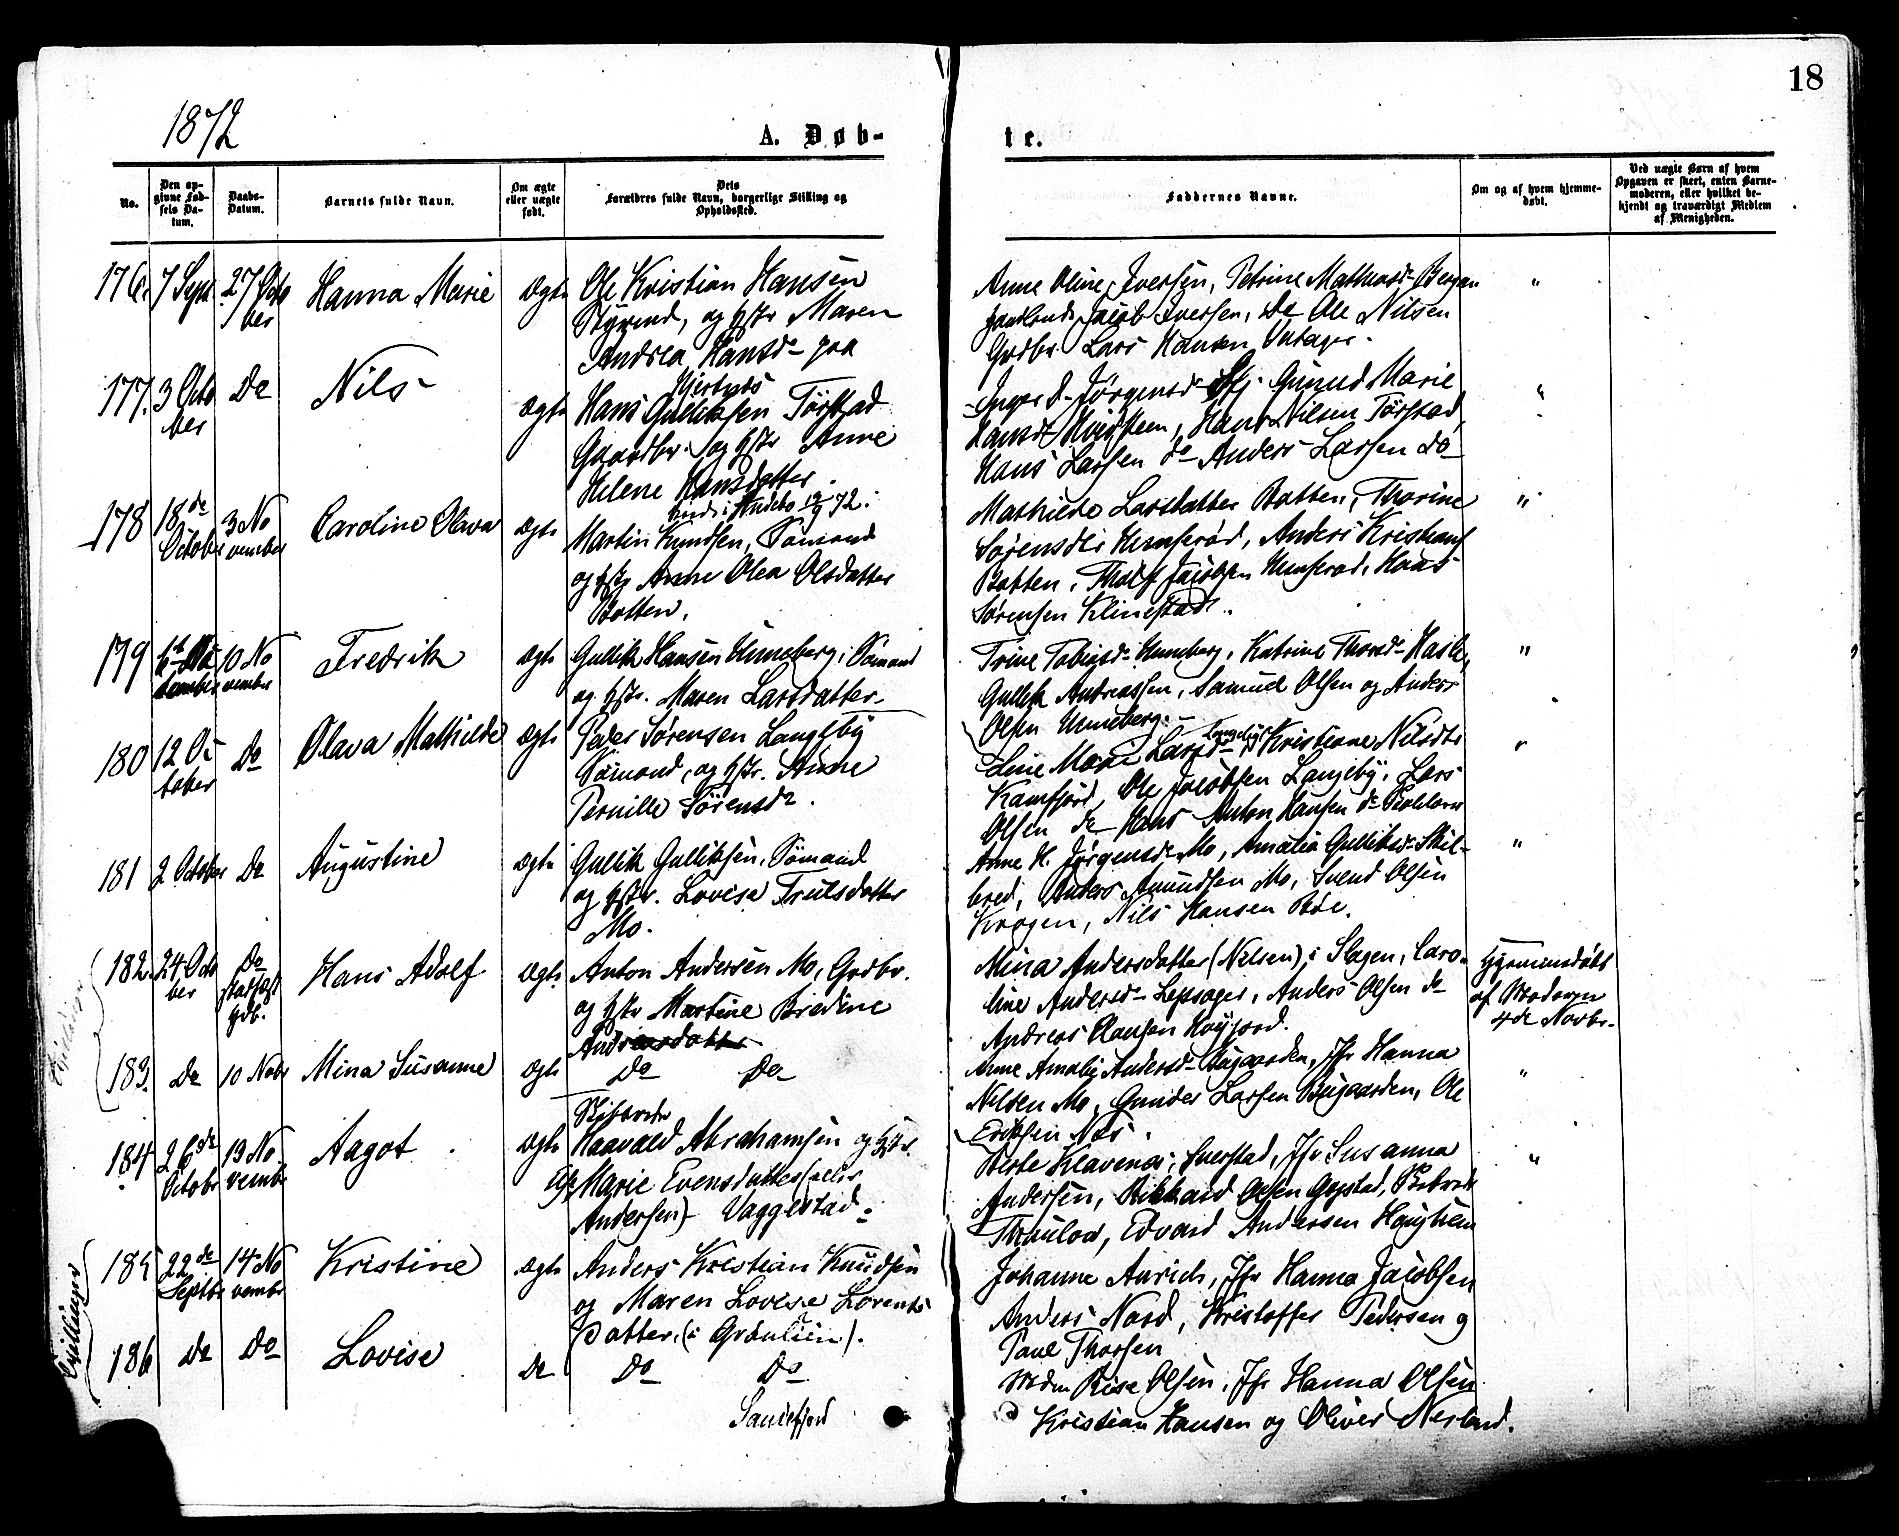 18
1872
A. Døb-
te.
No.
Den op-
givne Fød-
sels Da-
tum.
Daabs-
Datum.
Barnets fulde Navn.
Om ægte
eller uægte
født.
Dets
Forældres fulde Navn, borgerlige Stilling og
Opholdssted.
Faddernes Navne.
Om og af hvem hjemme-
døbt.
Ved uægte Barn af hvem
Opgaven er skeet, enten Barne-
moderen, eller hvilket be-
kjendt og troværdigt Medlem
af Menigheden.
176. 7 Sept 27 Octo
ber
Hanna Marie
ægte
Ole Kristian Hansen
Styrmd, og Hstr Maren
Andrea Hansd- paa
Anne Oline Iversen, Petrine Mathiasd- Bergan
Jacob Iversen, Do Ole Nilsen
Grdbr. Lars Hansen
"
177. 3 Octo
ber
Do
Nils
ægte
Hans Gulliksen Tørstad
Gaardbr. og Hstr Anne
Helene Hansdatter.
Inger D. Jørgensd- Gunild Marie
Hansd- Hvidsteen, Hans Nilsen Tørstad,
Hans Larsen do Anders Larsen do
"
178 18de
October
3 No
vember
Caroline Olava
ægte
72.
Martin Knudsen, Sømand
og Hstr Anne Olea Olsdatter
Botten.
Mathilde Larsdatter Botten, Thorine
Sørensdtr Unnerød, Anders Kristians
Botten, Jacobsen Unnerød, Hans
Sørensen Klinestad.
"
179 10 No
vember
Fredrik
ægte
Gullik Hansen Unneberg, Sømand
og Hstr. Maren Larsdatter
Trine Tobiasd- Unneberg, Katrine Thorsd- Hasle,
Gullik Andreassen, Samuel Olsen og Anders
Olsen Unneberg.
"
180 12 Oc
tober
Do
Olava Mathilde
ægte
Peder Sørensen Langeby
Sømand, og Hstr. Anne
Pernille Sørensdr.
Line Marie Larsd- Langeby Kristiane Nilsdtr
Kamfjord, Ole Jacobsen Langeby, Lars
Olsen do Hans Anton Hansen do
"
181 2 October Do
Augustine
ægte
Gullik Gulliksen, Sømand
og Hstr. Lovise Trulsdatter
Mo.
Anne H. Jørgensdr Mo, Amalia Gulliksd- Skil-
bred, Anders Amundsen Mo, Svend Olsen
Krogen, Nils Hansen Bøe.
"
182. 24 Octo
ber
Do
stadfæst
Hans Adolf
ægte
Anton Andersen Mo, Grdbr.
og Hstr Martine Bredine
Andreasdatter
Mina Andersdatter (Nilsen) i Slagen, Caro-
line Andersd- Lepsager, Anders Olsen do
Andreas Clausen Høyjord.
Hjemmedøbt
af Moderen
4de Novbr.
183. Do 10 Nobr
Mina Susanne
ægte
Do Do
Anne Amalie Andersd- Bugaarden, Jfr Hanna
Nilsen Mo, Gunder Larsen Bugaarden, Ole
Eriksen Nes.
"
184 26de
October
13 No
vembr
Aagot
ægte
Haavald Abrahamsen og Hstr.
Marie Evensdatter (eller
Andersen) Vaggestad.
Berte Klavenes, Sverstad, Jfr Susanna
Andersen, Rikhard Olsen Gogstad,
Thaulow, Edvard Andersen Haughem
"
185 22de
Septbr
14 No
vembr
Kristine
ægte
Anders Kristian Knudsen
og Maren Lovise Lorents
Datter, (i Granlien).
Johanne Aurich, Jfr Hanna Jacobsen,
Anders Nord, Kristoffer Pedersen og
Paul Thorsen
186 Do Do
Lovise
Do
Do Do
Sandefjord
Mdm Rise Olsen, Jfr Hanna Olsen
Kristian Hansen og Oliver Nerland.
Tvillinger